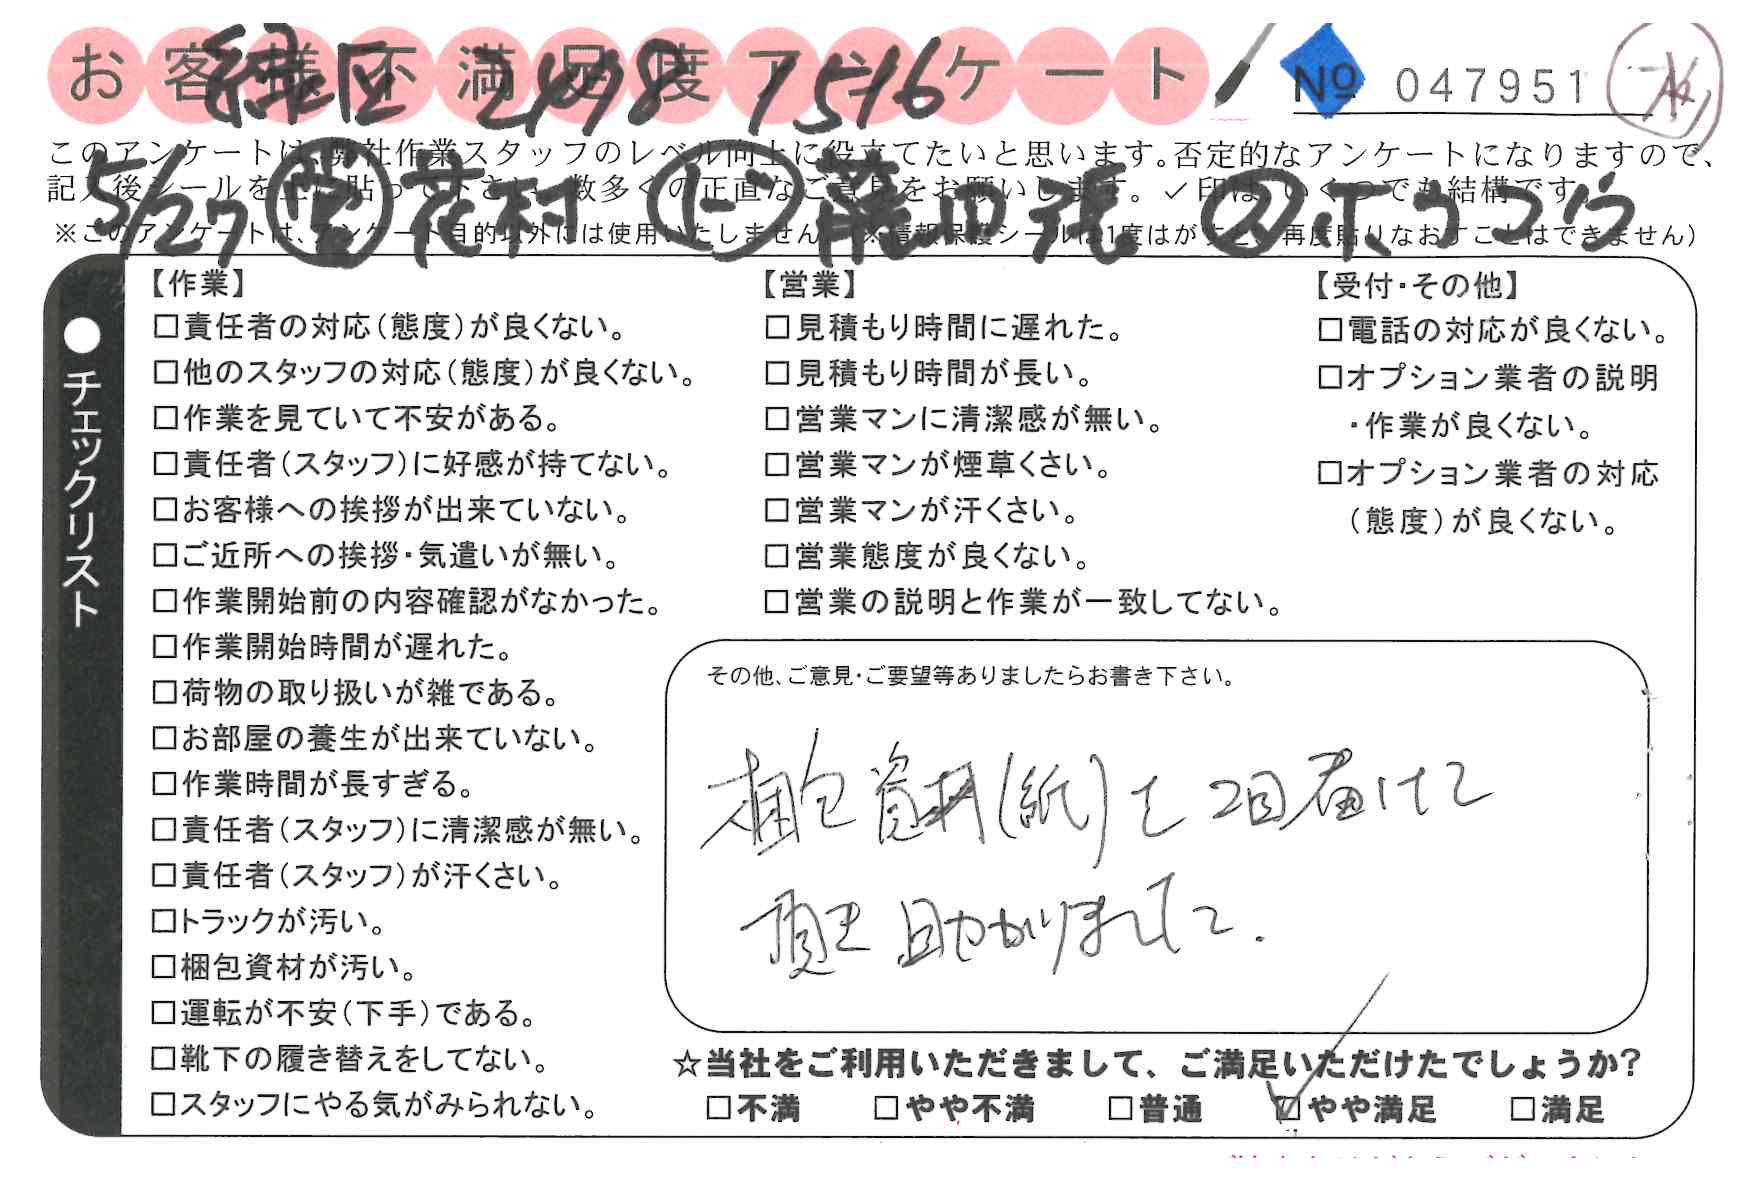 お客様不満足度アンケート
緑区 2498 7516
№ 047951
このアンケートは、弊社作業スタッフのレベル向上に役立てたいと思います。否定的なアンケートになりますので、
記入後シールを上に貼って下さい。数多くの正直なご意見をお願いします。✓印は、いくつでも結構です。
5/27 花村 藤田 張 ホウコウ
※このアンケートは、アンケート目的以外には使用いたしません。(※情報保護シールは1度はがすと、再度貼りなおすことはできません)
●チェックリスト
【作業】
□責任者の対応(態度)が良くない。
□他のスタッフの対応(態度)が良くない。
□作業を見ていて不安がある。
□責任者(スタッフ)に好感が持てない。
□お客様への挨拶が出来ていない。
□ご近所への挨拶・気遣いが無い。
□作業開始前の内容確認がなかった。
□作業開始時間が遅れた。
□荷物の取り扱いが雑である。
□お部屋の養生が出来ていない。
□作業時間が長すぎる。
□責任者(スタッフ)に清潔感が無い。
□責任者(スタッフ)が汗くさい。
□トラックが汚い。
□梱包資材が汚い。
□運転が不安(下手)である。
□靴下の履き替えをしてない。
□スタッフにやる気がみられない。
【営業】
□見積もり時間に遅れた。
□見積もり時間が長い。
□営業マンに清潔感が無い。
□営業マンが煙草くさい。
□営業マンが汗くさい。
□営業態度が良くない。
□営業の説明と作業が一致してない。
【受付・その他】
□電話の対応が良くない。
□オプション業者の説明
・作業が良くない。
□オプション業者の対応
(態度)が良くない。
その他、ご意見・ご要望等ありましたらお書き下さい。
梱包資材(紙)を2回届けて
頂き助かりました.
☆当社をご利用いただきまして、ご満足いただけたでしょうか?
□不満 □やや不満 □普通 ☑やや満足 □満足